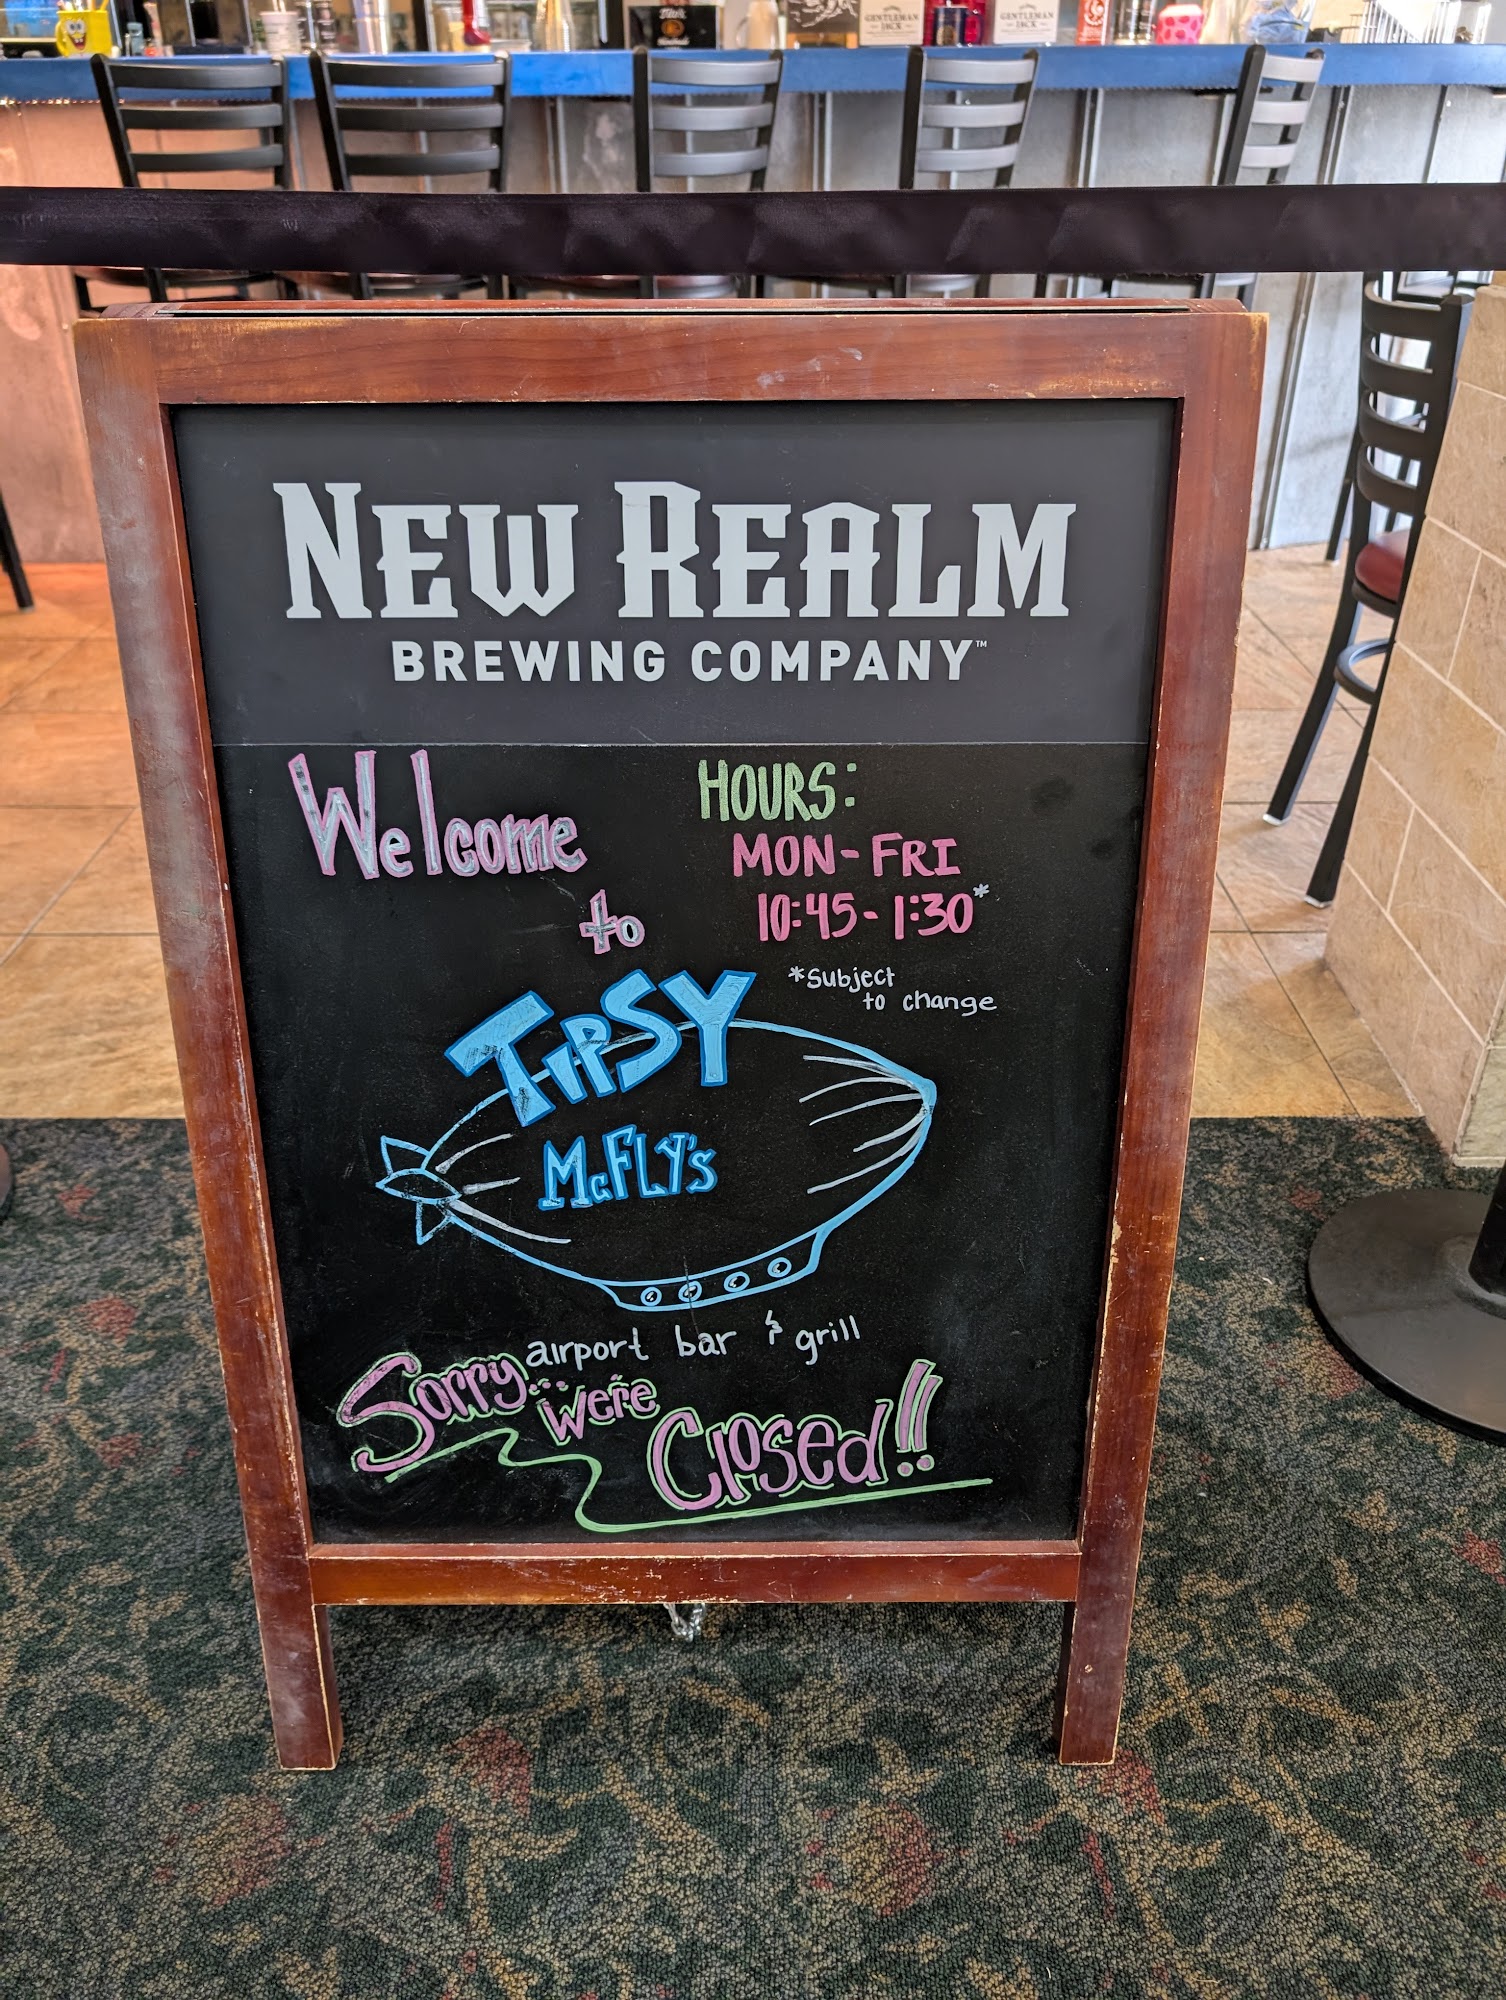 GENTLEMAN
JACK
GENTLEMAN
JACK
NEW REALM
BREWING COMPANY™
Welcome
to
HOURS:
MON-FRI
10:45-1:30*
*Subject
to change
TIPSY
McFLY'S
airport bar & grill
Sorry... we're Closed!!